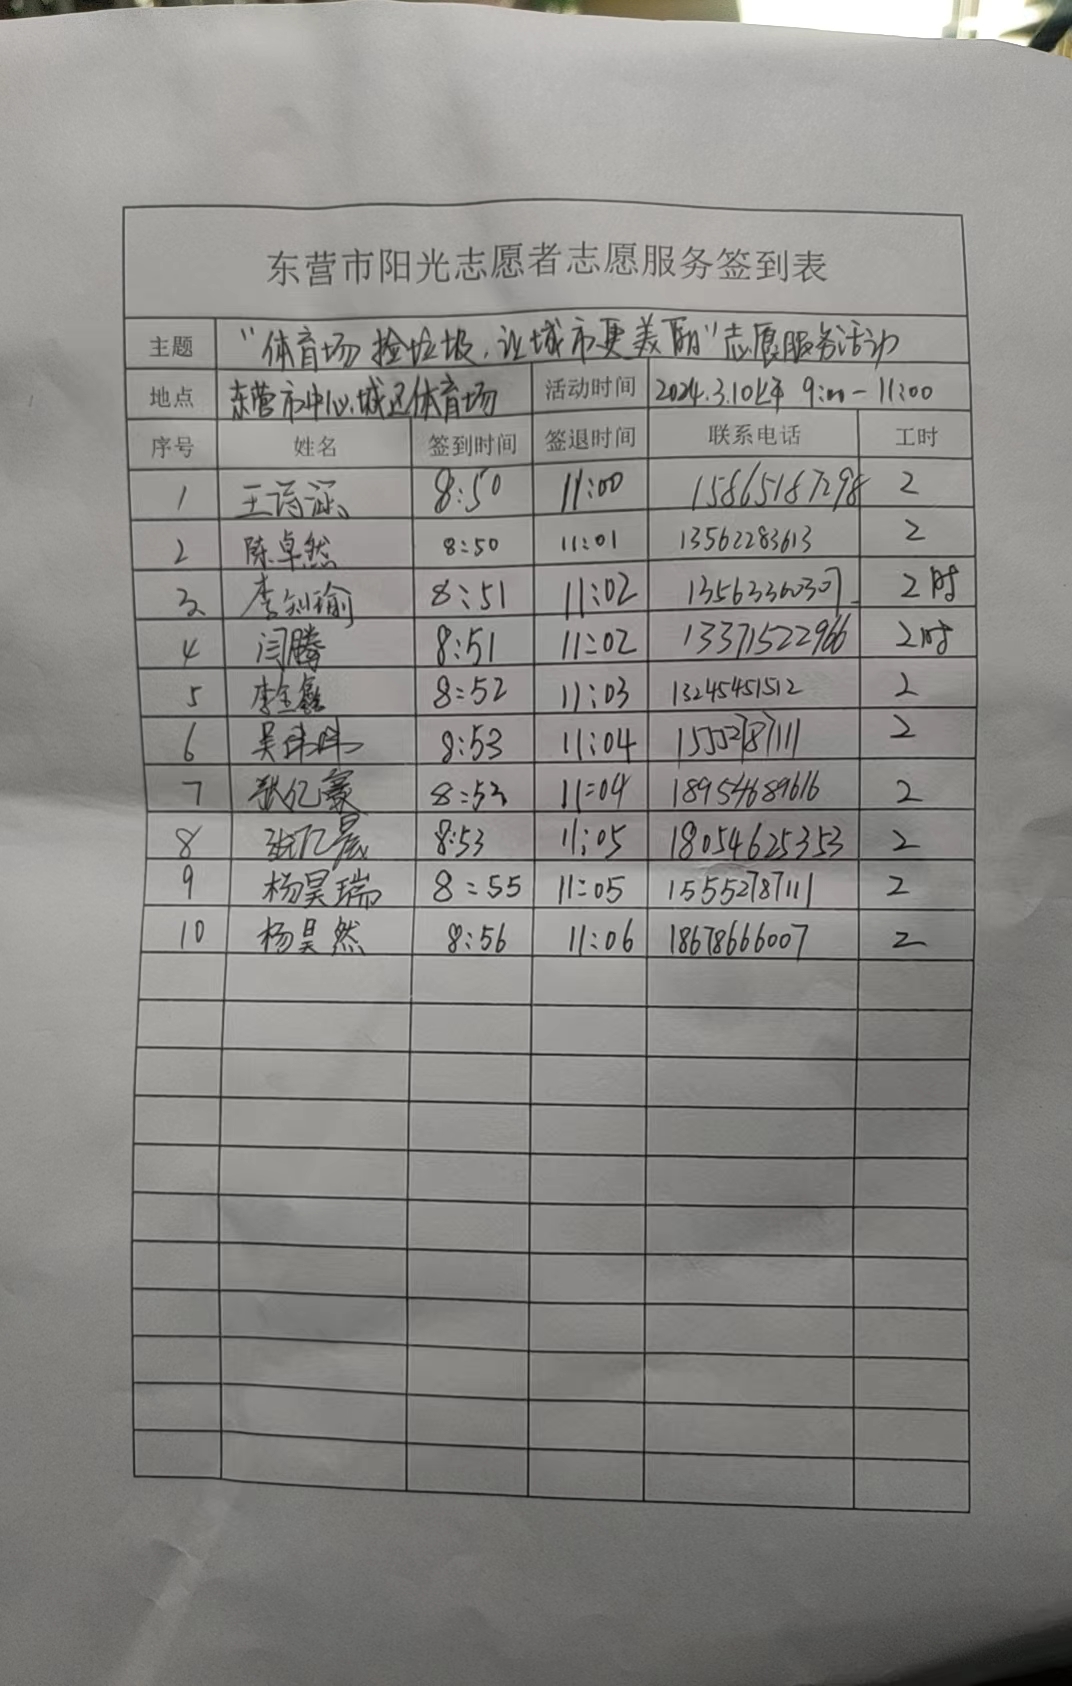 东营市阳光志愿者志愿服务签到表
主题 “体育场捡垃圾,让城市更美丽”志愿服务活动
地点 东营市中心城区体育场 活动时间 2024.3.10上午 9:00-11:00
序号 姓名 签到时间 签退时间 联系电话 工时
1 王诗涵 8:50 11:00 15865187298 2
2 陈卓然 8:50 11:01 13562283613 2
3 李剑瑜 8:51 11:02 13563360307 2时
4 闫腾 8:51 11:02 13371522966 2时
5 李金鑫 8:52 11:03 13245451512 2
6 吴玮玮 8:53 11:04 15552787111 2
7 张亿豪 8:53 11:04 18954689616 2
8 张亿晨 8:53 11:05 18054625353 2
9 杨昊瑞 8:55 11:05 15552787111 2
10 杨昊然 8:56 11:06 18678666007 2